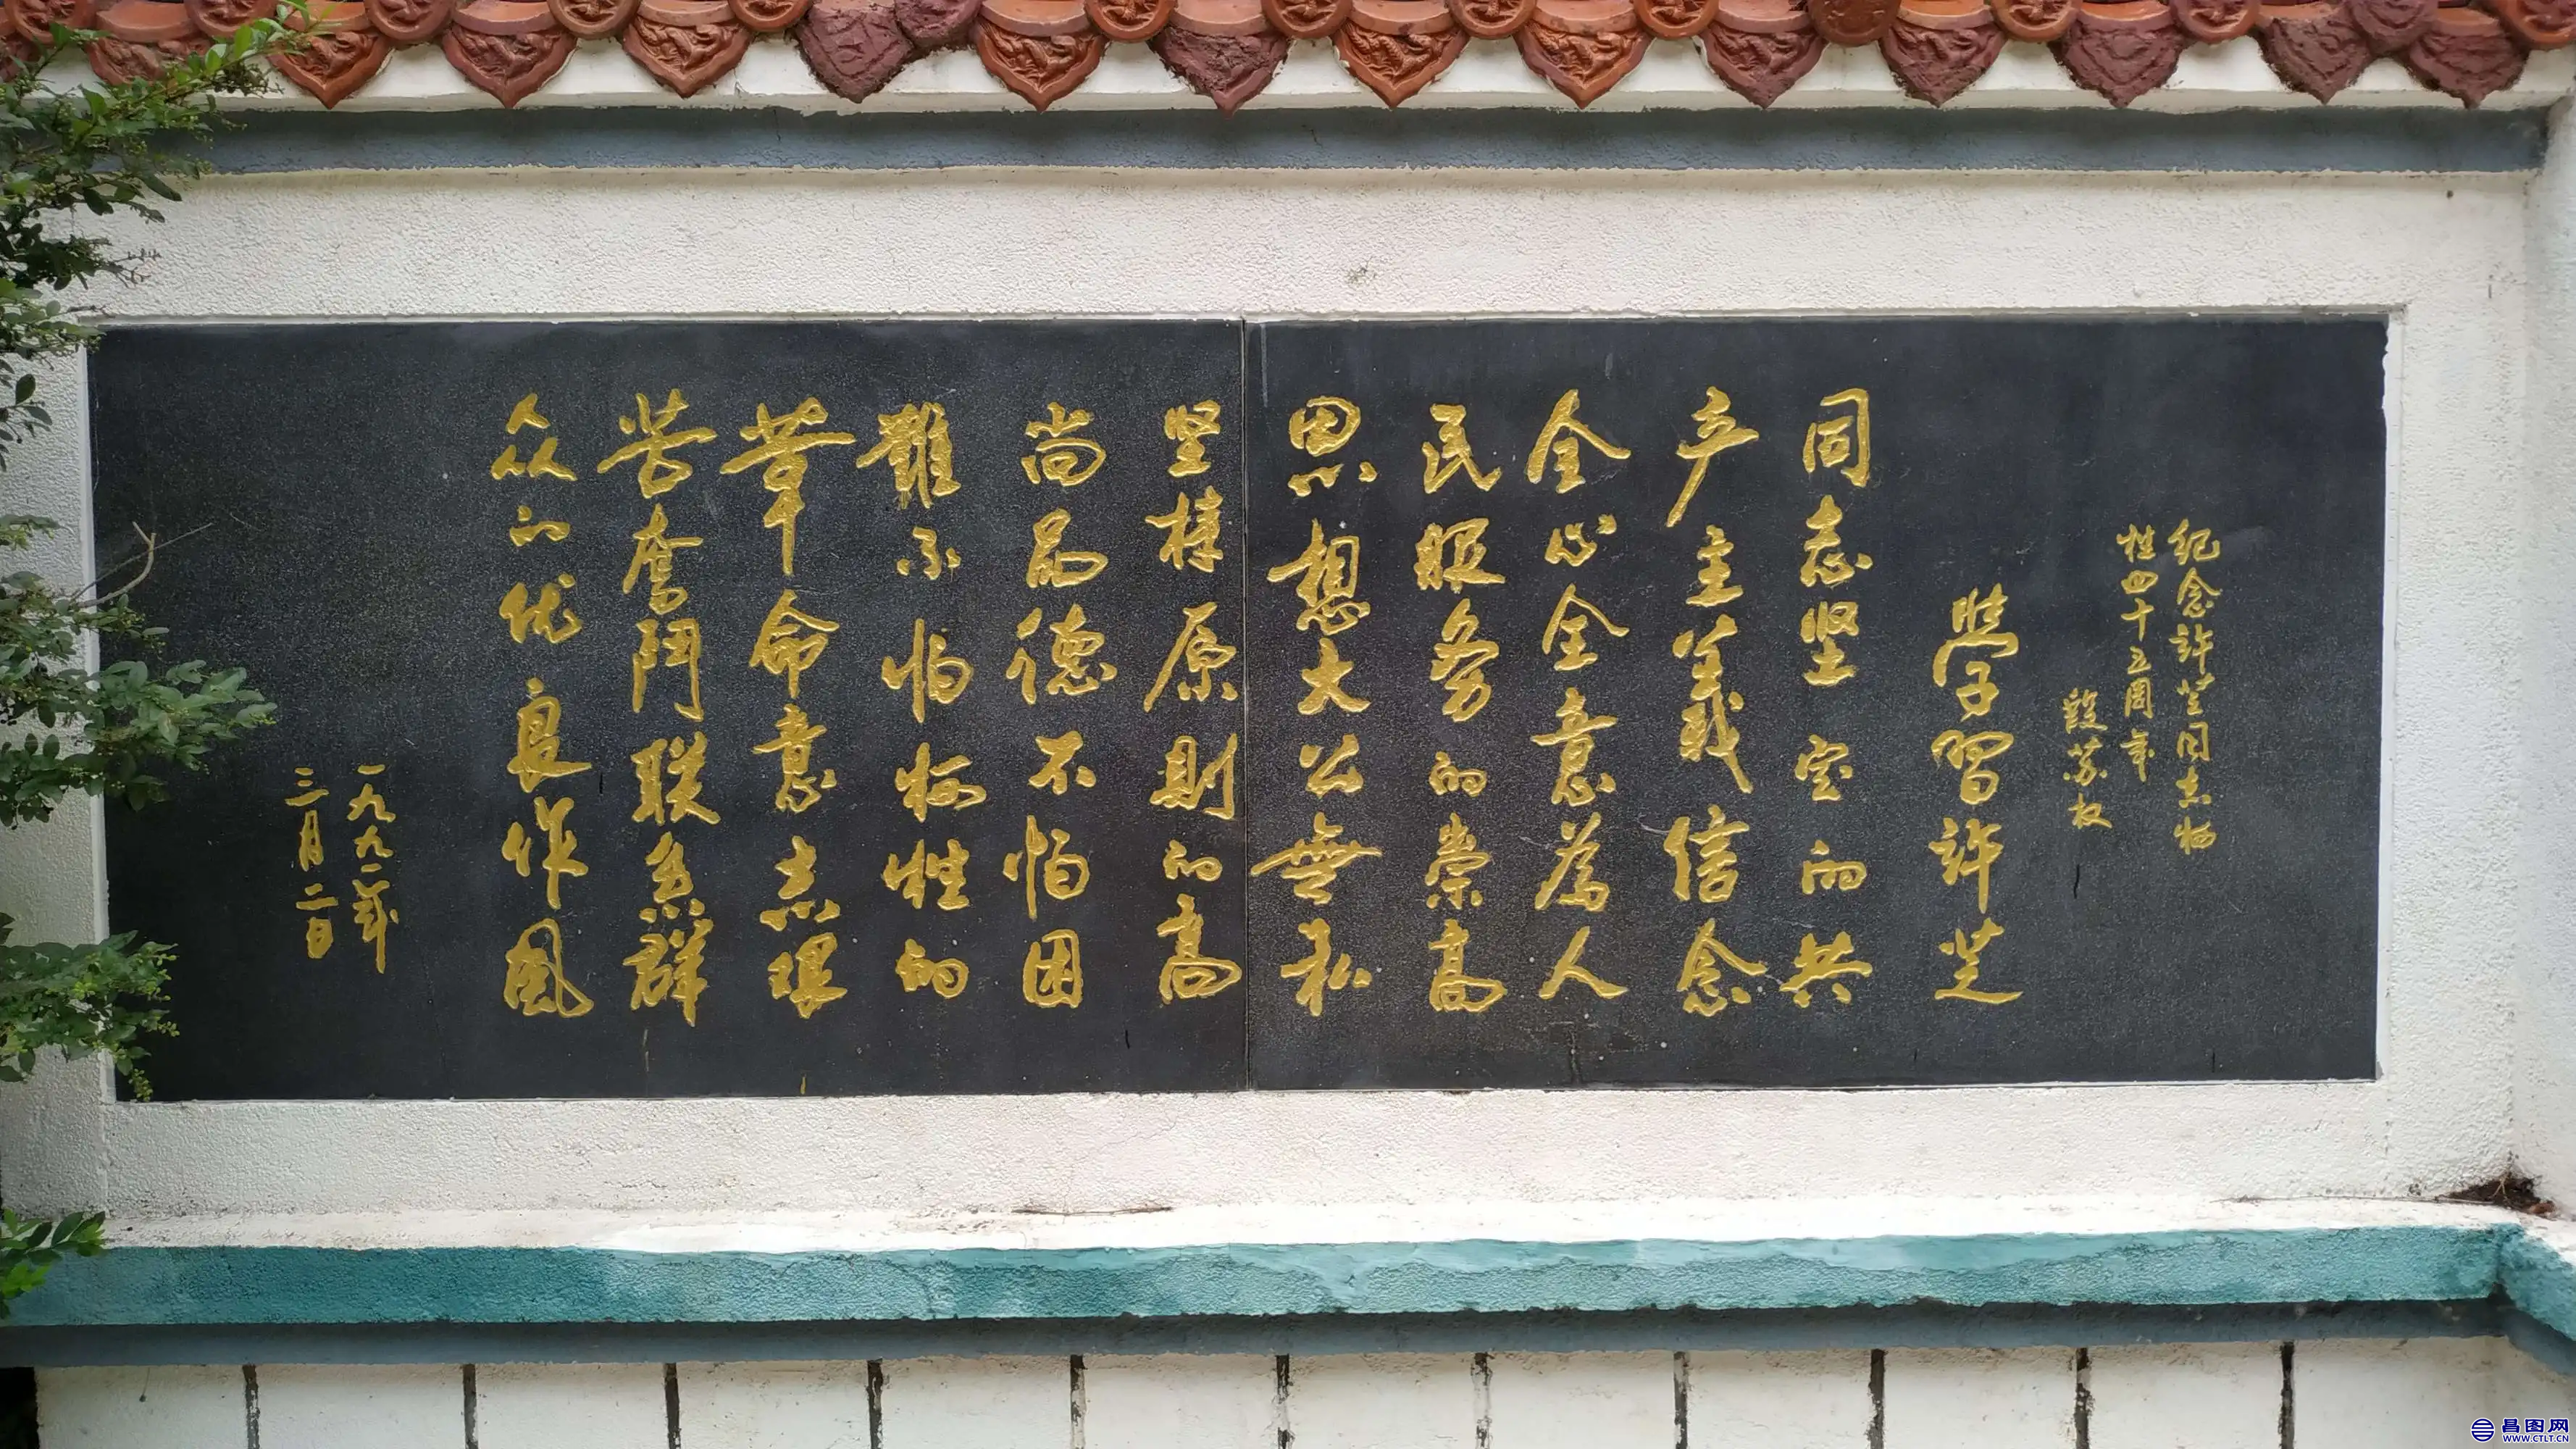 纪念許芝同志牺
牲四十五周年
段苏权
學習許芝
同志坚定的共
产主義信念
全心全意為人
民服务的崇高
思想大公無私
坚持原則的高
尚品德不怕困
難不怕牺牲的
革命意志艰
苦奮鬥联系群
众的优良作風
一九九一年
三月二日
昌图网
WWW.CTLT.CN